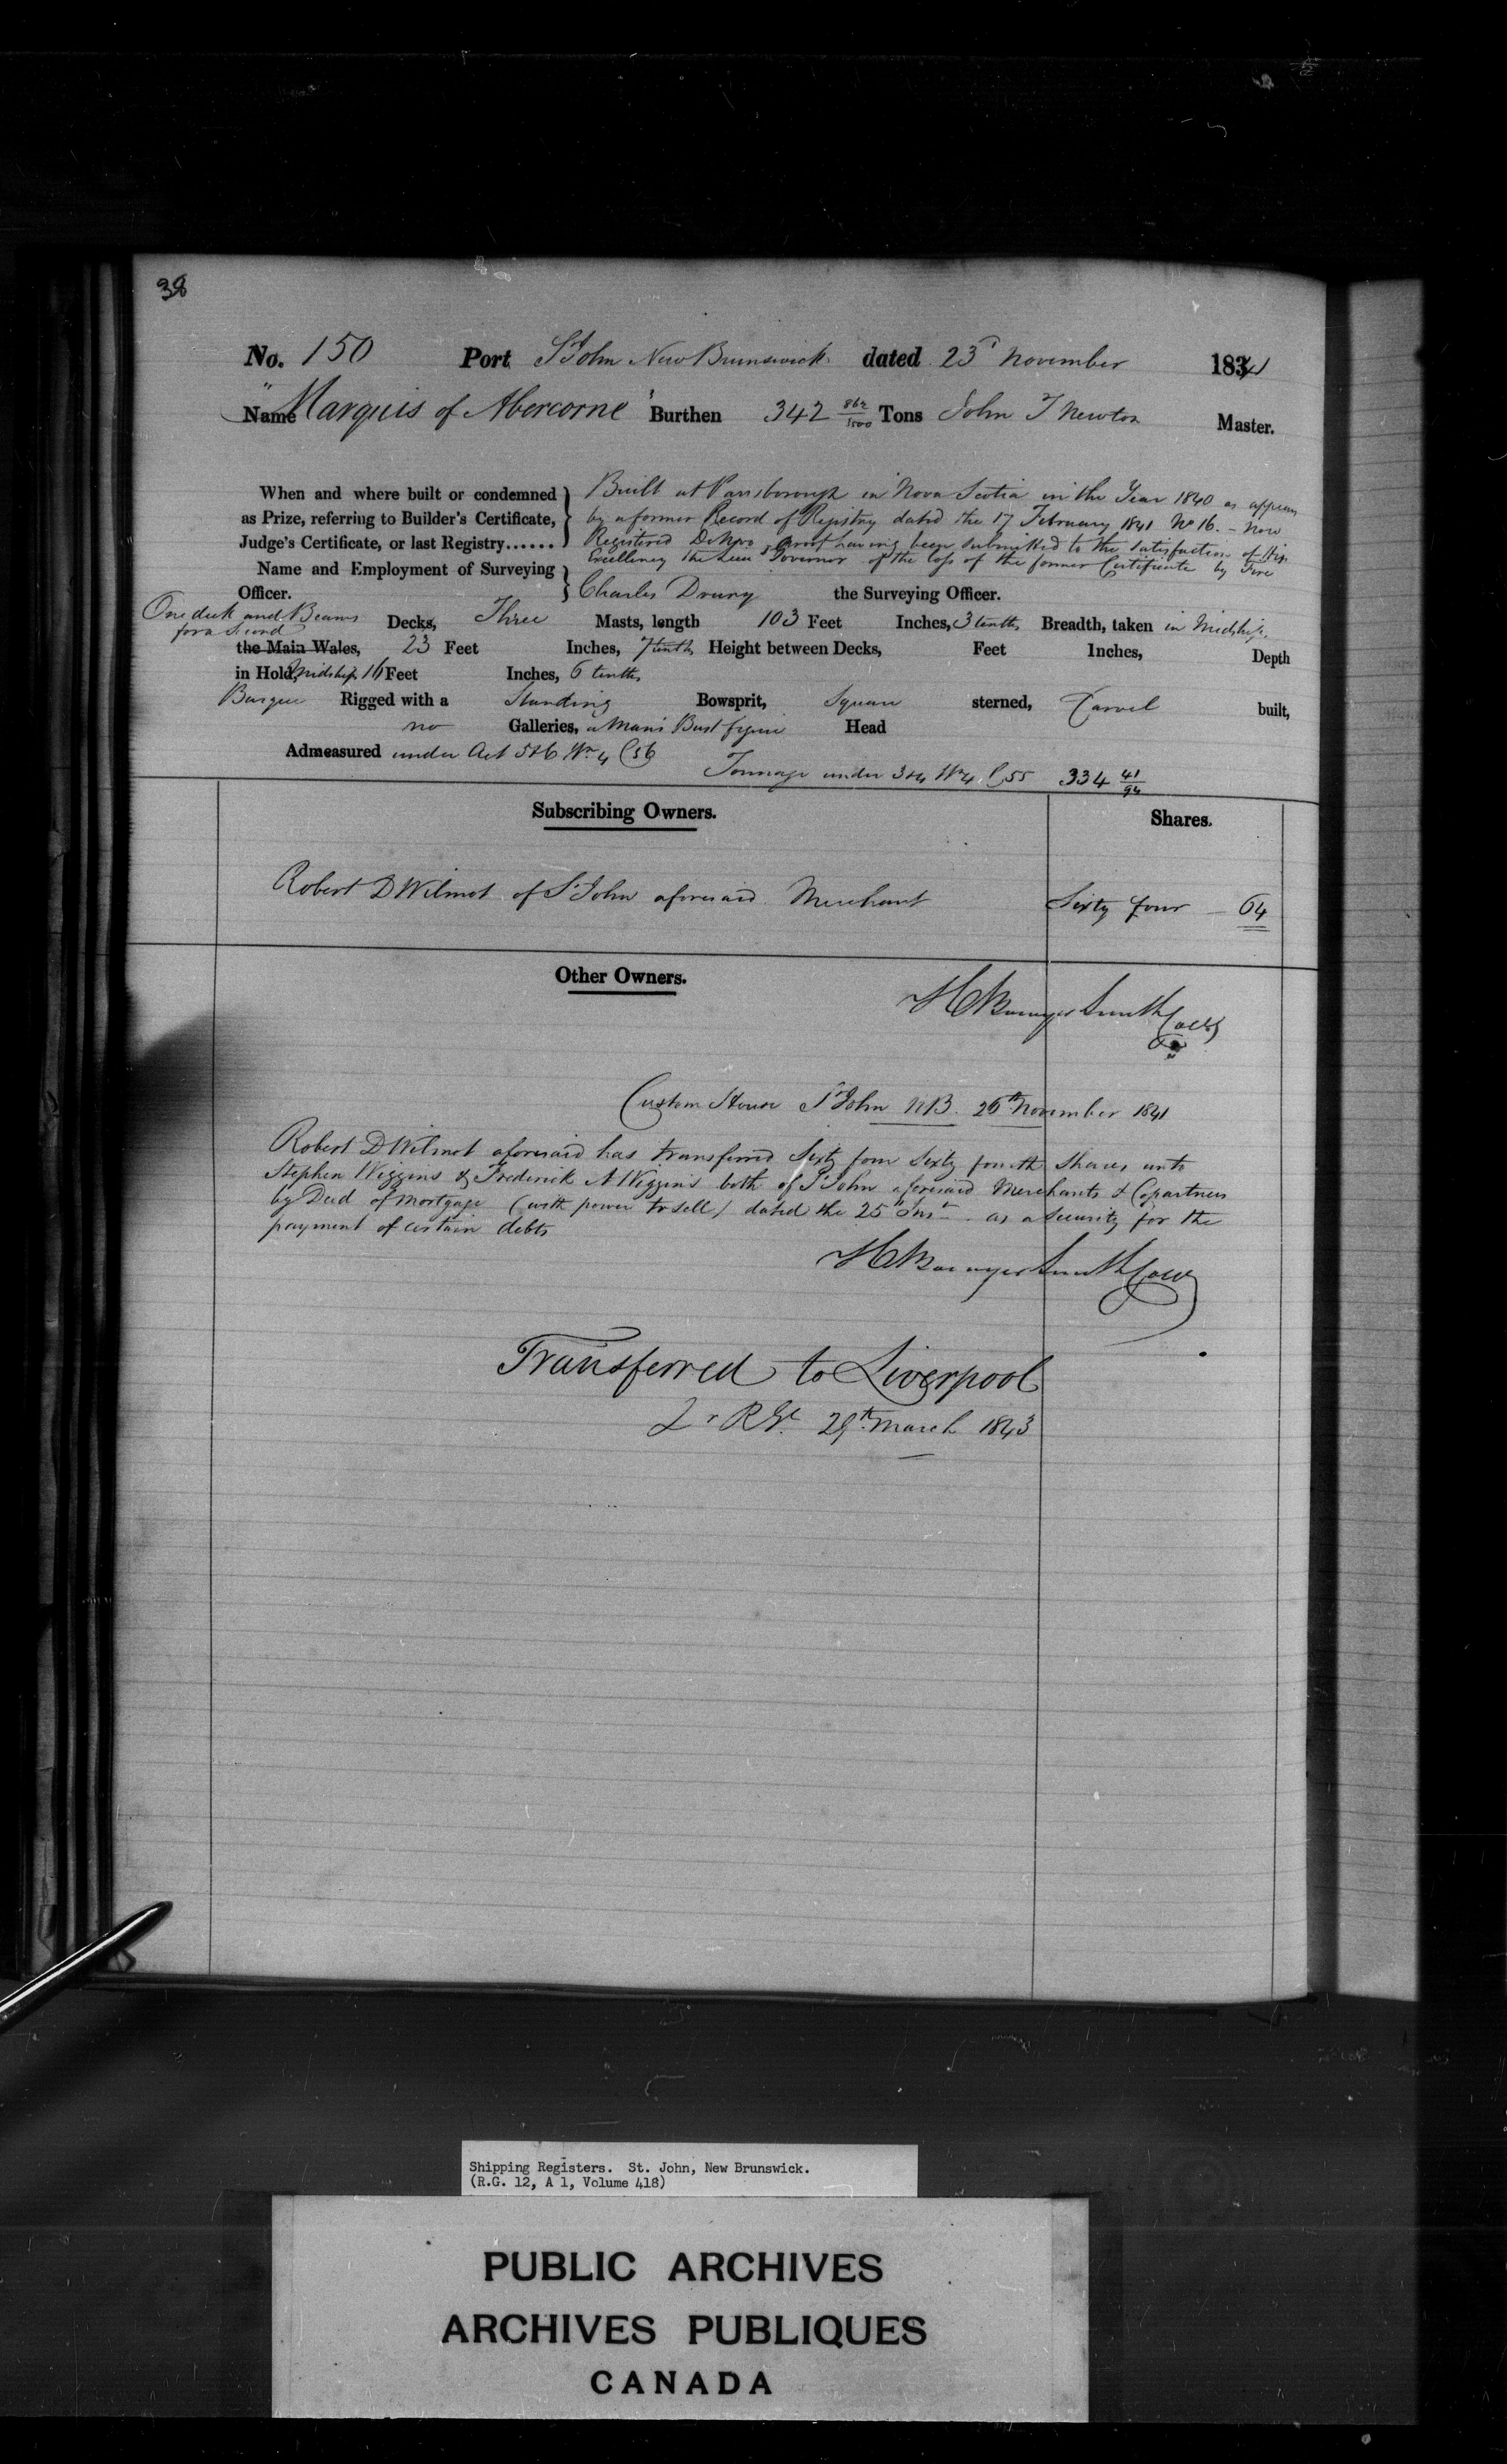 38
No. 150 Port St John New Brunswick dated 23d November 1841
Name "Marquis of Abercorne" Burthen 342 862/1500 Tons John T Newton Master.
When and where built or condemned } Built at Parrsborough in Nova Scotia in the Year 1840 as appears
as Prize, referring to Builder's Certificate, } by a former Record of Registry dated the 17 February 1841 No 16. – now
Judge's Certificate, or last Registry...... } Registered De Novo proof having been submitted to the satisfaction of His
Excellency the Lieut Governor of the loss of the former Certificate by Fire
Name and Employment of Surveying }
Officer. } Charles Drury the Surveying Officer.
One deck and Beams for a Second Decks, Three Masts, length 103 Feet Inches, 3 tenths Breadth, taken in Midships
the Main Wales, 23 Feet Inches, 7 tenths Height between Decks, Feet Inches, Depth
in Hold, Midships 16 Feet Inches, 6 tenths
Barque Rigged with a Standing Bowsprit, Square sterned, Carvel built,
no Galleries, a Man's Bust figure Head
Admeasured under Act 5&6 Wm 4 C56
Tonnage under 3&4 Wm 4 C,55 334 41/94
Subscribing Owners. Shares.
Robert D Wilmot of St John aforesaid Merchant Sixty four – 64
Other Owners.
Smith Collr
Custom House St John NB. 26th November 1841
Robert D Wilmot aforesaid has transferred Sixty four Sixty fourth Shares unto
Stephen Wiggins & Frederick A Wiggins both of St John aforesaid Merchants & Copartners
by Deed of Mortgage (with power to sell) dated the 25th Inst. as a Security for the
payment of certain debts
Smith Collr
Transferred to Liverpool
29th March 1843
Shipping Registers. St. John, New Brunswick.
(R.G. 12, A 1, Volume 418)
PUBLIC ARCHIVES
ARCHIVES PUBLIQUES
CANADA